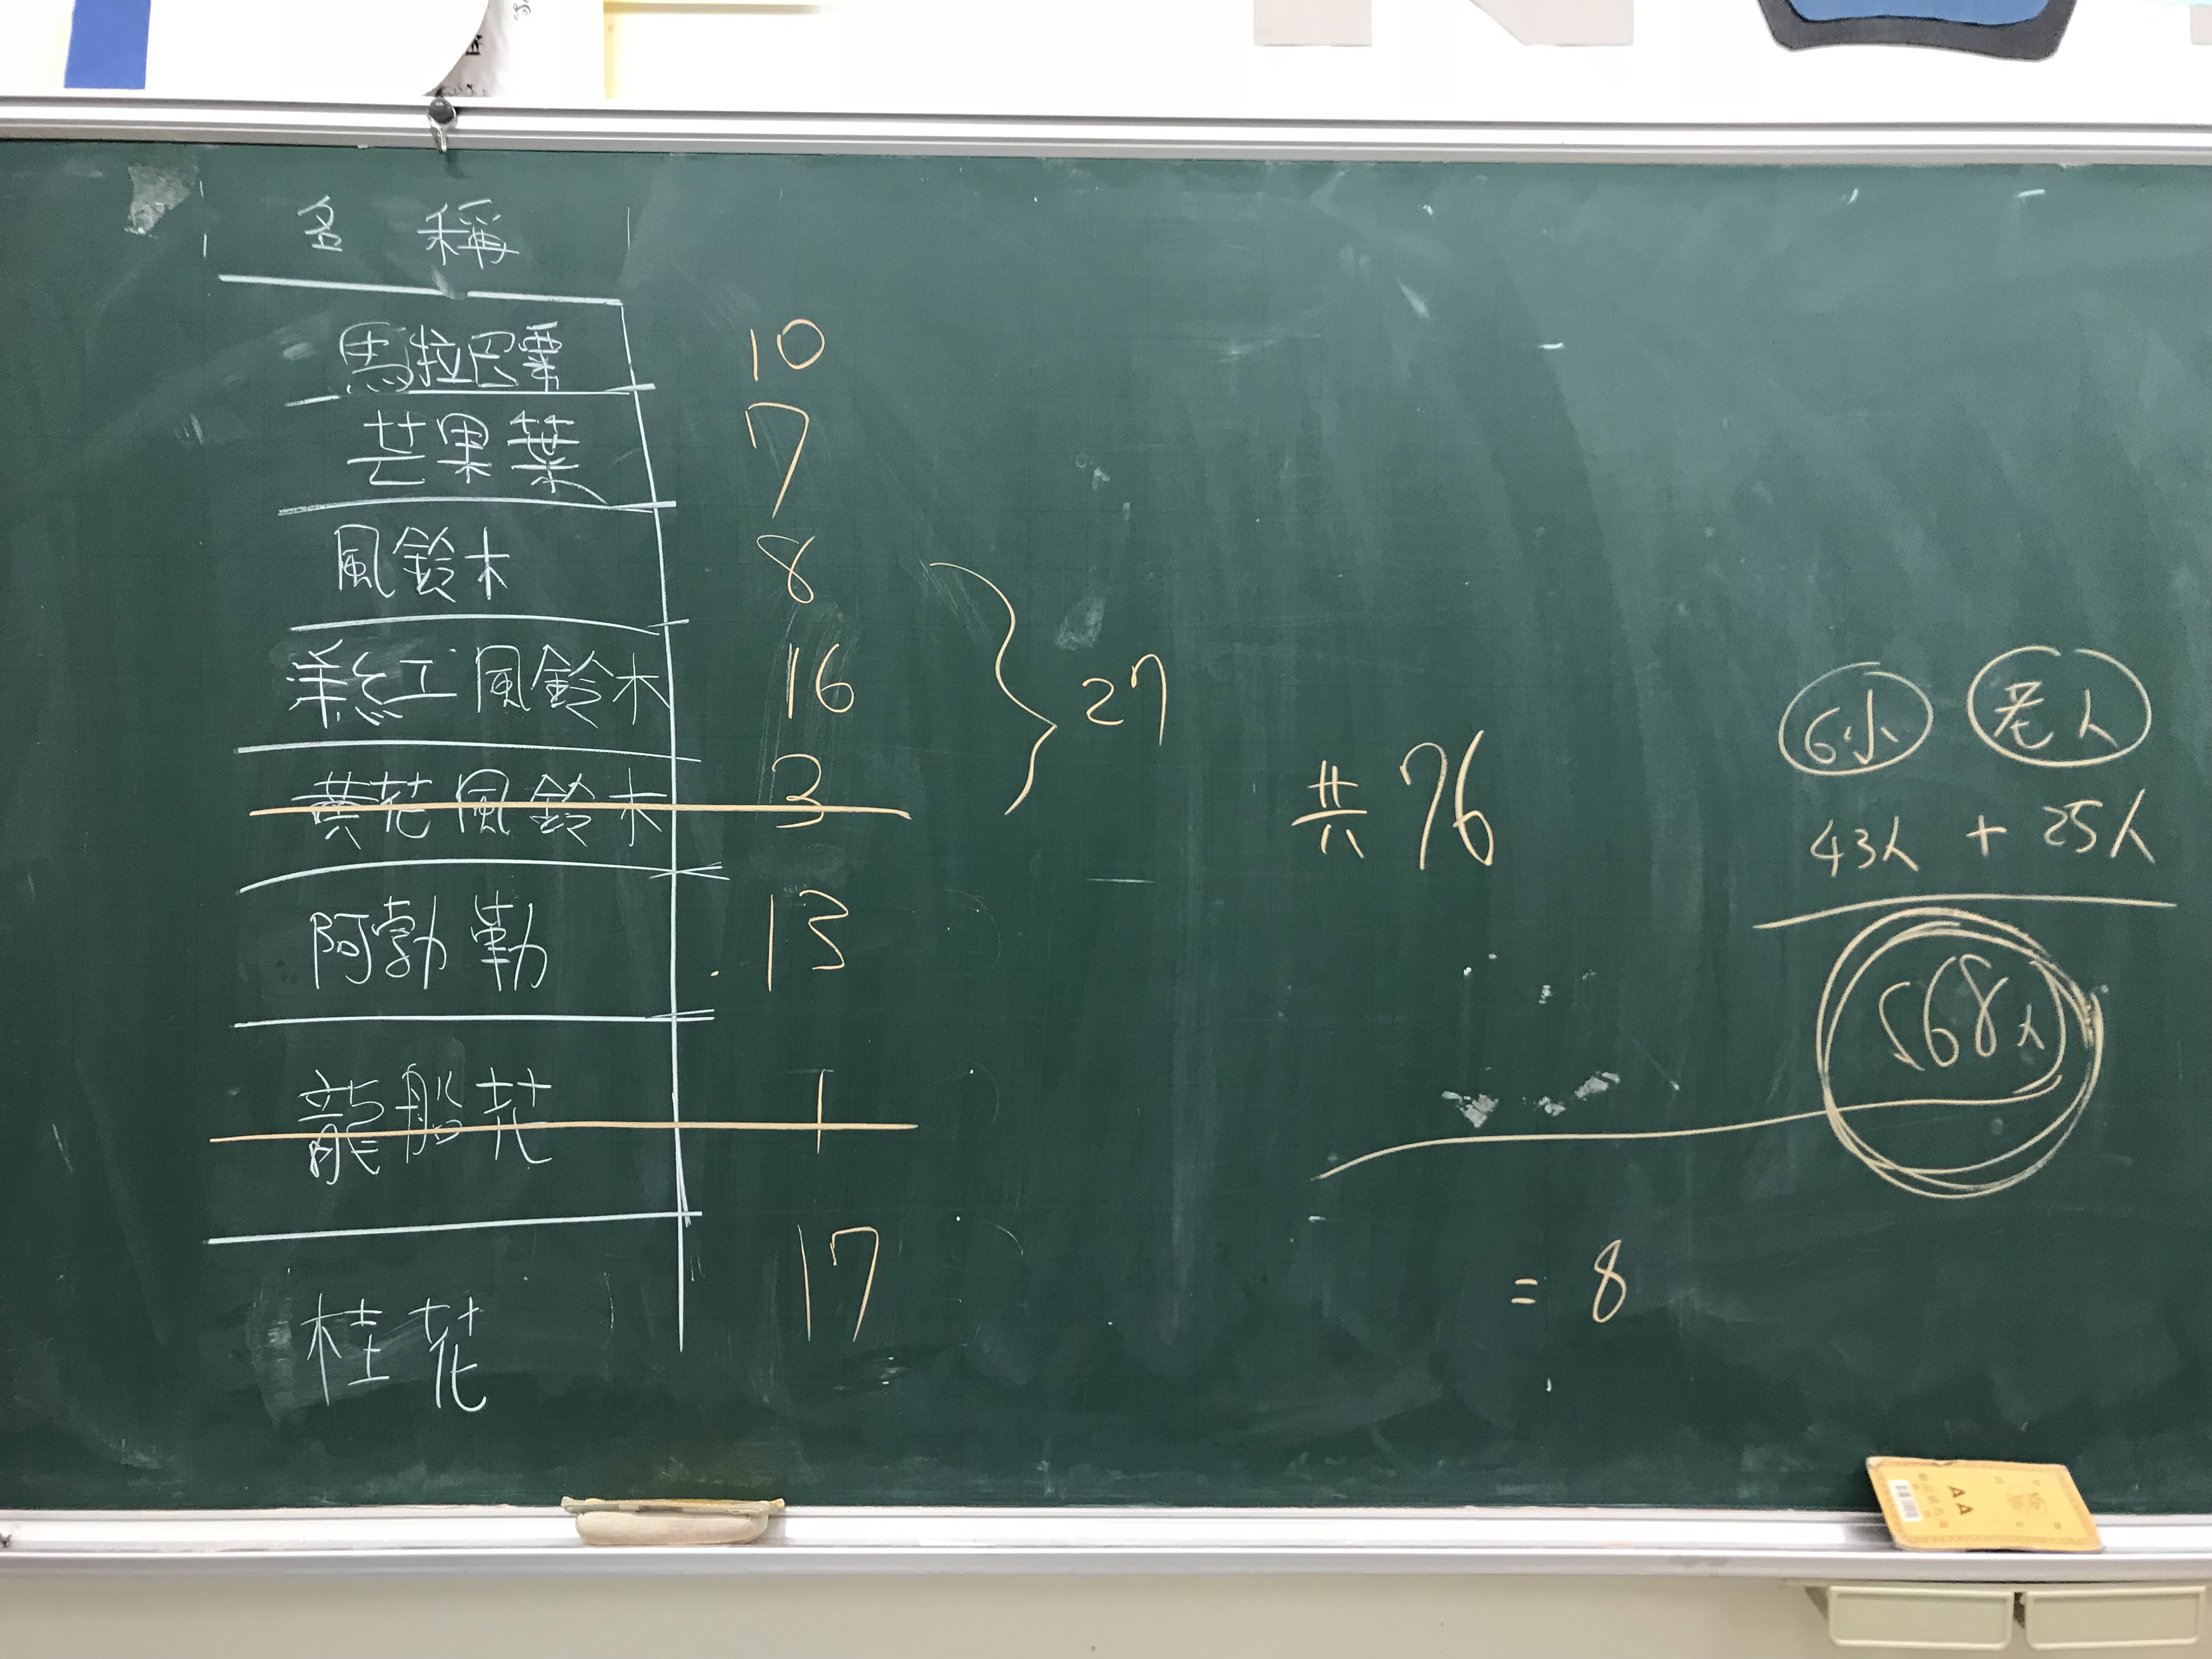 名稱
馬拉巴栗 10
芒果葉 7
風鈴木 8
洋紅風鈴木 16
黃花風鈴木 3
27
阿勃勒 13
龍船花 1
桂花 17
共 76
6小 老人
43人 + 25人
68人
= 8
AA